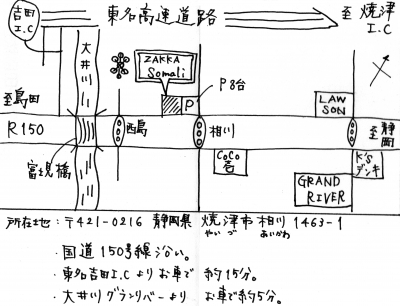 吉田
I.C
東名高速道路
至 焼津
I.C
大井川
ZAKKA
Somali
P8台
P
至島田
LAW
SON
R150
西島
相川
至静岡
富見橋
CoCo
壱
K's
デンキ
GRAND
RIVER
所在地：〒421-0216 静岡県 焼津市 相川 1463-1
やいづ あいかわ
・国道150号線沿い。
・東名吉田I.Cよりお車で 約15分。
・大井川グランリバーより お車で約5分。